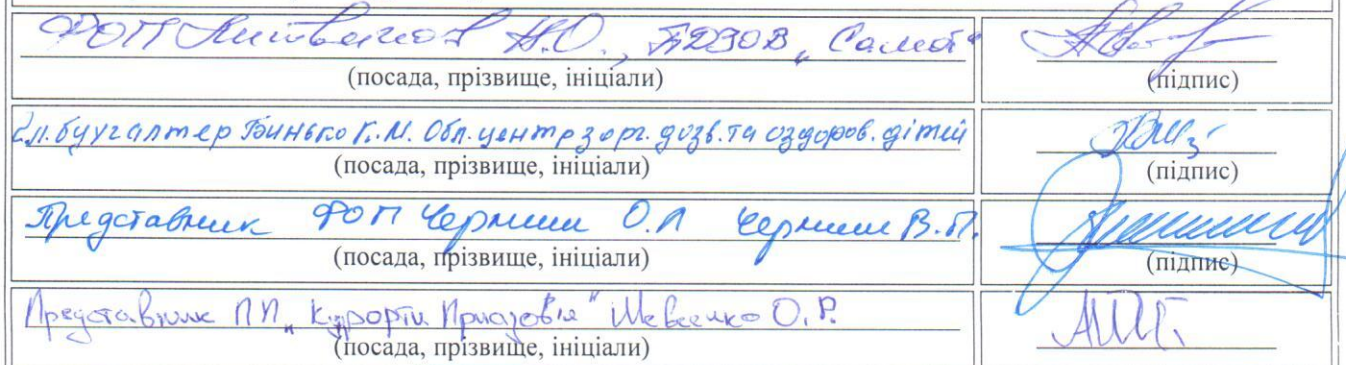 ФОП Литвинов Н.О., ПДЗОВ „Салют"
(посада, прізвище, ініціали)
(підпис)
Гл. бухгалтер Бинько К.М. Обл. центр з орг. дозв. та оздоров. дітей
(посада, прізвище, ініціали)
(підпис)
Представник ФОП Черниш О.Л Черниш В.П.
(посада, прізвище, ініціали)
(підпис)
Представник ПП „Курорти Приазов'я" Шевченко О.Р.
(посада, прізвище, ініціали)